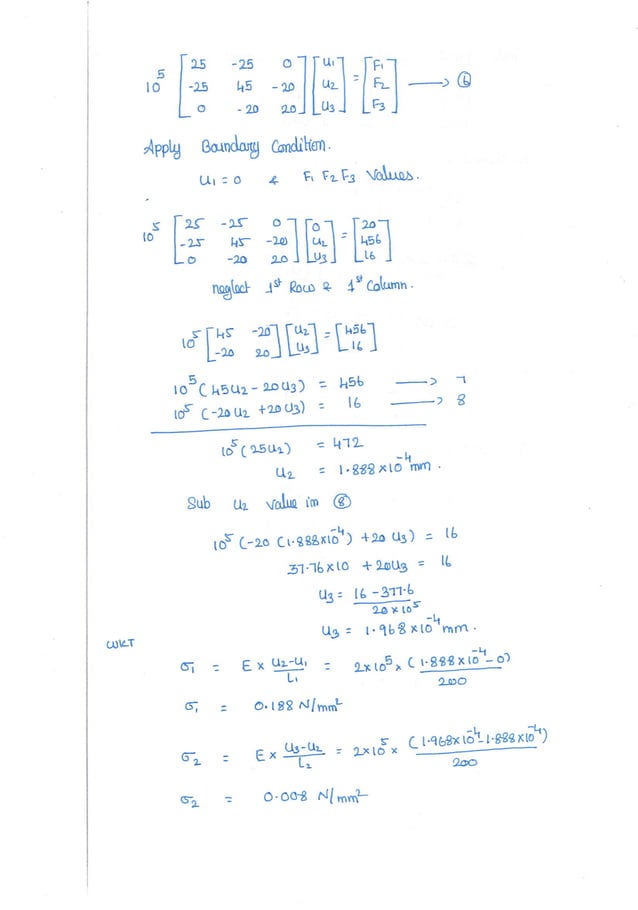 10^5 [25 -25 0; -25 45 -20; 0 -20 20] [u1; u2; u3] = [F1; F2; F3] ⟶ ⑥
Apply Boundary Condition.
u1 = 0 & F1 F2 F3 Values.
10^5 [25 -25 0; -25 45 -20; 0 -20 20] [0; u2; u3] = [20; 456; 16]
neglect 1st Row & 1st Column.
10^5 [45 -20; -20 20] [u2; u3] = [456; 16]
10^5 (45u2 - 20u3) = 456 ⟶ 7
10^5 (-20u2 + 20u3) = 16 ⟶ 8
10^5 (25u2) = 472
u2 = 1.888×10^-4 mm.
Sub u2 value in ⑧
10^5 (-20 (1.888×10^-4) + 20 u3) = 16
37.76×10 + 20u3 = 16
u3 = (16 - 377.6) / (20×10^5)
u3 = 1.968×10^-4 mm.
WKT
σ1 = E × (u2-u1)/L1 = 2×10^5 × (1.888×10^-4 - 0)/200
σ1 = 0.188 N/mm²
σ2 = E × (u3-u2)/L2 = 2×10^5 × (1.968×10^-4 - 1.888×10^-4)/200
σ2 = 0.008 N/mm²